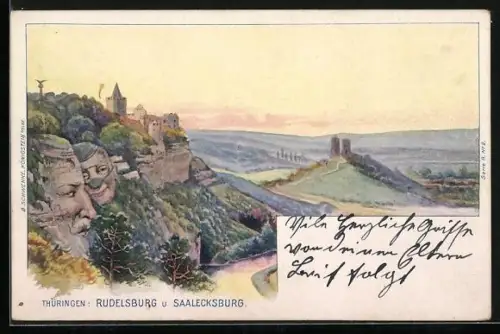 Viele herzliche Grüsse
von deinen Eltern
Brief folgt
THÜRINGEN: RUDELSBURG U SAALECKSBURG.
B. SCHWENKE, KÖNIGSTEIN
Serie II. No 2.